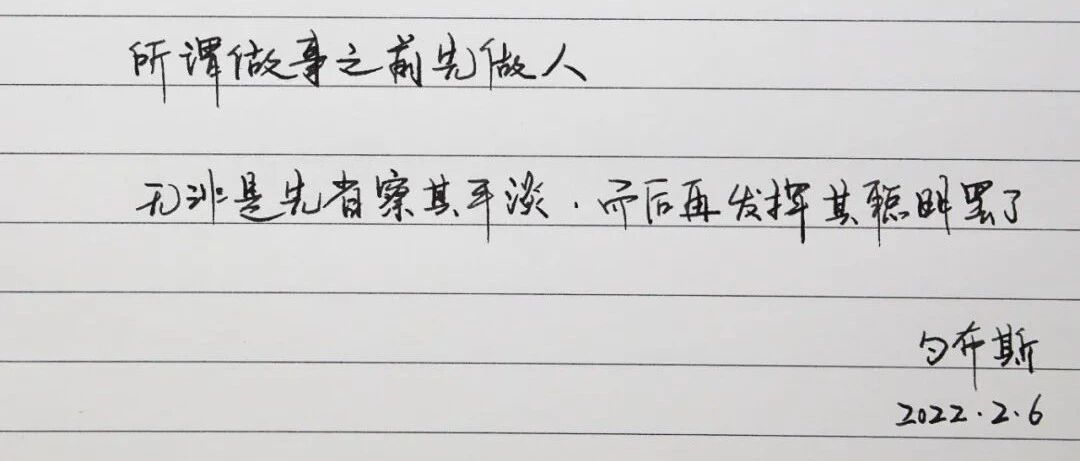 所谓做事之前先做人
无非是先省察其平淡.而后再发挥其聪明罢了
勺布斯
2022.2.6